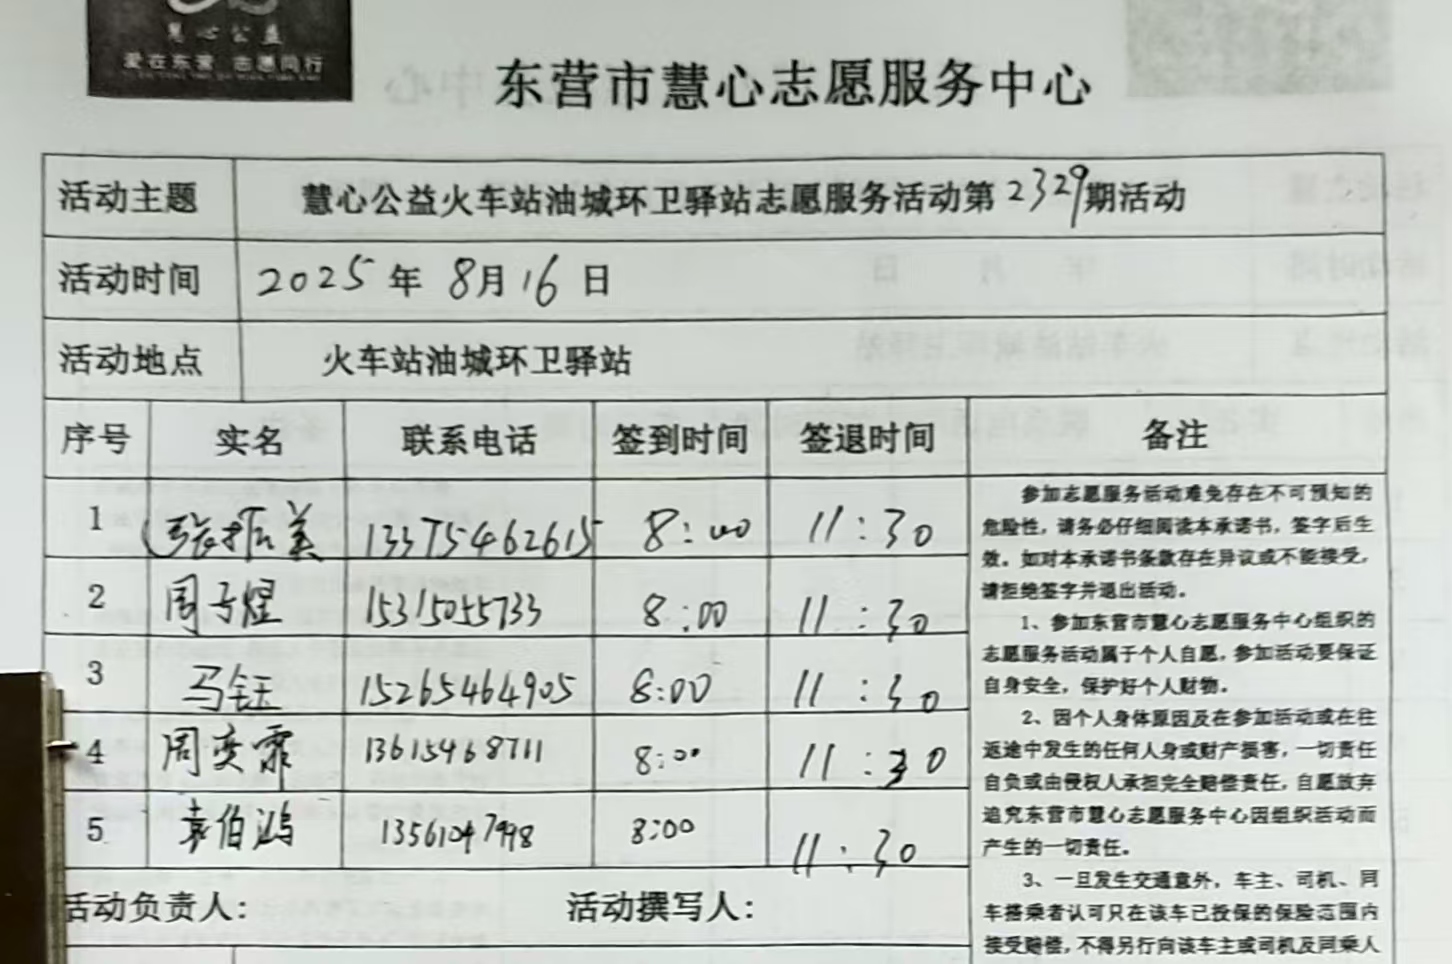 慧心公益
爱在东营 志愿同行
东营市慧心志愿服务中心
活动主题 慧心公益火车站油城环卫驿站志愿服务活动第2329期活动
活动时间 2025年8月16日
活动地点 火车站油城环卫驿站
序号 实名 联系电话 签到时间 签退时间 备注
1 张振美 13375462615 8:00 11:30
2 周子煜 15315055733 8:00 11:30
3 马钰 15265464905 8:00 11:30
4 周奕霏 13615468711 8:00 11:30
5 袁伯鸿 13561047998 8:00 11:30
参加志愿服务活动难免存在不可预知的
危险性，请务必仔细阅读本承诺书，签字后生
效。如对本承诺书条款存在异议或不能接受，
请拒绝签字并退出活动。
1、参加东营市慧心志愿服务中心组织的
志愿服务活动属于个人自愿，参加活动要保证
自身安全，保护好个人财物。
2、因个人身体原因及在参加活动或在往
返途中发生的任何人身或财产损害，一切责任
自负或由侵权人承担完全赔偿责任，自愿放弃
追究东营市慧心志愿服务中心因组织活动而
产生的一切责任。
3、一旦发生交通意外，车主、司机、同
车搭乘者认可只在该车已投保的保险范围内
接受赔偿，不得另行向该车主或司机及同乘人
活动负责人： 活动撰写人：